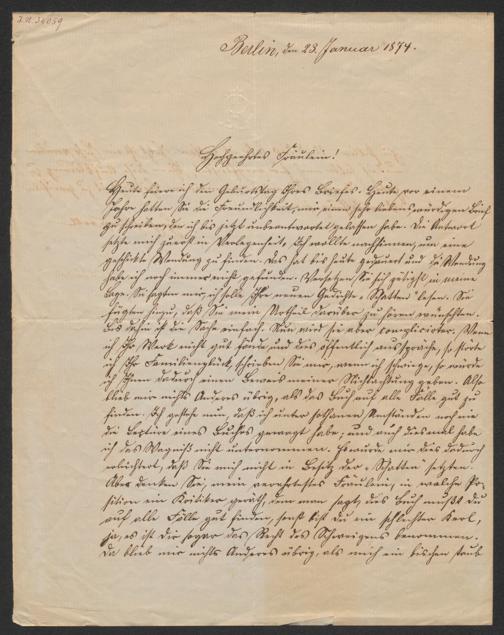 I.N. 34059
Berlin, den 23. Januar 1874.
Hochgeehrtes Fräulein!
Heute feiere ich den Geburtstag Ihres Briefs. Heute, vor einem
Jahr hatten Sie die Freundlichkeit, mir einen sehr liebenswürdigen Brief
zu schreiben, den ich bis jetzt unbeantwortet gelassen habe. Die Antwort
setzte mich zuerst in Verlegenheit, ich wollte nachsinnen, um eine
geschickte Wendung zu finden. Das hat bis heute gedauert und die Wendung
habe ich noch immer nicht gefunden. Versetzen Sie sich gütigst in meine
Lage. Sie sagten mir, ich solle Ihre neuen Gedichte "Schatten" lesen. Sie
fügten hinzu, daß Sie mein Urtheil darüber zu hören wünschten.
Bis dahin ist die Sache einfach. Nun wird sie aber complicirter. Wenn
ich Ihr Werk nicht gut fände und dies öffentlich ausspräche, so störte
ich Ihr Familienglück, schrieben Sie mir, wenn ich schwiege, so würde
ich Ihnen dadurch einen Beweis meiner Nichtachtung geben. Also
blieb mir nichts Anderes übrig, als das Buch auf alle Fälle gut zu
finden. Ich gestehe nun, daß ich unter sothanen Umständen noch nie
die Lectüre eines Buches gewagt habe, und auch diesmal habe
ich das Wagniß nicht unternommen. Es wurde mir dies dadurch
erleichtert, daß Sie mich nicht in Besitz der "Schatten" setzten.
Aber denken Sie, mein verehrtestes Fräulein, in welche Po-
sition ein Kritiker geräth, dem man sagt, das Buch mußt du
auf alle Fälle gut finden, sonst bist du ein schlechter Kerl,
ja, es ist dir sogar das Recht des Schweigens benommen.
Da blieb mir nichts Anderes übrig, als mich ein bischen taub